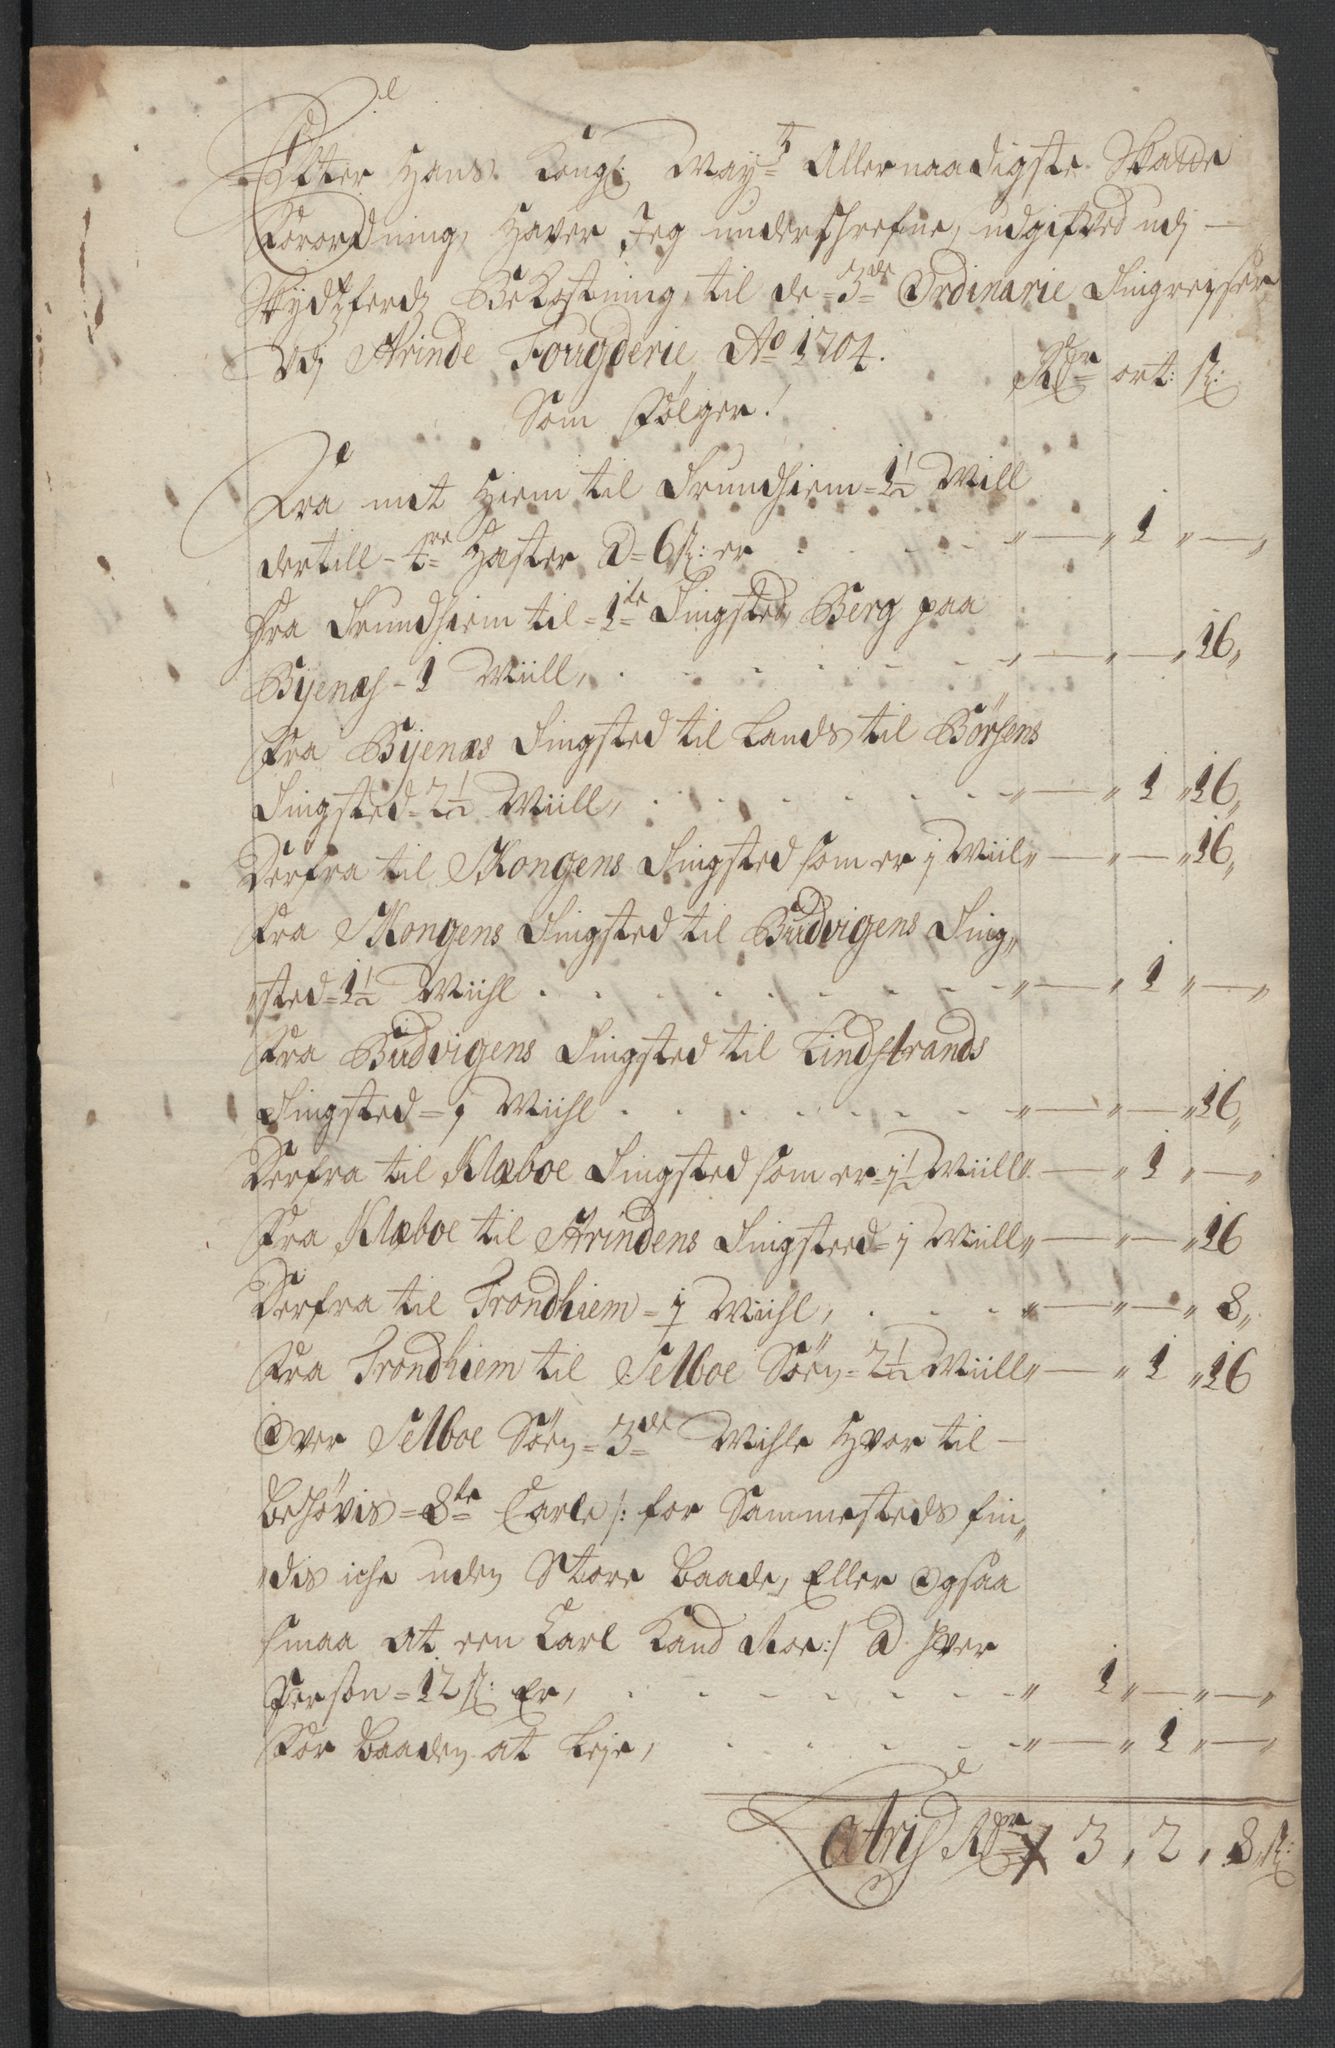 Efter Hans Kongl: May:tz Allernaadigste Skatte
Forordning, Hafver Jeg underschrefne, udgifved udj —
Skydtzferdz Bekostning, til de=3=de Ordinarie Tingreyser
Udj Strinde Fougderie Ao 1704.
Som Følger! Rdr ort: s:
Fra mit Hiem til Trundhiem=1½ Mill
dertill=4re Hæster a=6 s: er „—„ 1 „—„
Fra Trundhiem til=1ste Tingsted Berg paa
Byenæs=1 Miill, „—„—„ 16„
Fra Byenæs Tingsted til Lands til Børsens
Tingsted=2½ Miill, „—„ 1 „16„
Derfra til Skongens Tingsted som er j Miil „—„—„16„
Fra Skongens Tingsted til Budvigens Ting„
„sted=1½ Miihl „—„ 1 „—„
Fra Budvigens Tingsted til Lindstrands
Tingsted=j Miihl „—„—„16„
Derfra til Klæboe Tingsted som er=j½ Miill „—„ 1 „—„
Fra Klæboe til Strindens Tingsteed=j Miill „—„—„16
Derfra til Trondhiem=½ Miihl, „—„—„ 8„
Fra Trondhiem til Selboe Søen=2½ Miill „—„ 1 „16
Over Selboe Søen=3de Miihle Hvor til —
behøvis=8te Carle /: for Sammesteds fin„
„dis iche uden Store baade, Eller Ogsaa
smaa at een Carl Kand Roe :/ a hver
Person=12 s: Er, „ 1 „—„—„
For baaden at Leje, „—„ 1 „—„
Latris Rdr 3, 2, 8 s: